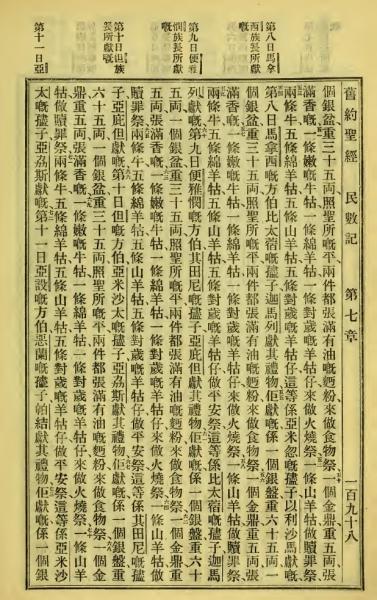 第八日馬拿
西族長所獻
嘅
第九日便雅
憫族長所獻
嘅
第十日但族
長所獻嘅
第十一日亞
舊約聖經 民數記 第七章 一百九十八
個銀盆重三十五両照聖所嘅平兩件都張滿有油嘅麫粉來做食物祭一個金鼎重五両張
滿香一條嫩嘅牛牯一條綿羊牯一條對歲嘅羊牯仔來做火燒祭一條山羊牯做贖罪祭
兩條牛五條綿羊牯五條山羊牯五條對歲嘅羊牯仔做平安祭這等係亞米忽嘅孻子以利沙馬獻嘅
第八日馬拿西嘅方伯比太蓿嘅孻子迦馬列獻其禮物佢獻嘅係一個銀盤重六十五両一
個銀盆重三十五両照聖所嘅平兩件都張滿有油嘅麫粉來做食物祭一個金鼎重五両張
滿香一條嫩嘅牛牯一條綿羊牯一條對歲嘅羊牯仔來做火燒祭一條山羊牯做贖罪祭
兩條牛五條綿羊牯五條山羊牯五條對歲嘅羊牯仔做平安祭這等係比太蓿嘅孻子迦馬
列獻嘅第九日便雅憫嘅方伯其田尼嘅孻子亞庇但獻其禮物佢獻嘅係一個銀盤重六十
五両一個銀盆重三十五両照聖所嘅平兩件都張滿有油嘅麫粉來做食物祭一個金鼎重
五両張滿香一條嫩嘅牛牯一條綿羊牯一條對歲嘅羊牯仔來做火燒祭一條山羊牯做
贖罪祭兩條牛五條綿羊牯五條山羊牯五條對歲嘅羊牯仔做平安祭這等係其田尼嘅孻
子亞庇但獻嘅第十日但嘅方伯亞米沙太嘅孻子亞荔斯獻其禮物佢獻嘅係一個銀盤重
六十五両一個銀盆重三十五両照聖所嘅平兩件都張滿有油嘅麫粉來做食物祭一個金
鼎重五両張滿香一條嫩嘅牛牯一條綿羊牯一條對歲嘅羊牯仔來做火燒祭一條山羊
牯做贖罪祭兩條牛五條綿羊牯五條山羊牯五條對歲嘅羊牯仔做平安祭這等係亞米沙
太嘅孻子亞荔斯獻嘅第十一日亞設嘅方伯恶蘭嘅孻子帕結獻其禮物佢獻嘅係一個銀